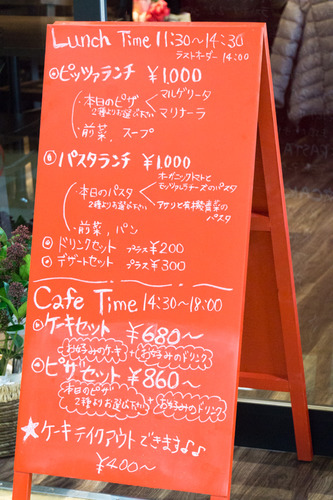 Lunch Time 11:30~14:30
ラストオーダー 14:00
ピッツァランチ ¥1000
・本日のピザ
2種よりお選び下さい
マルゲリータ
マリナーラ
・前菜、スープ
パスタランチ ¥1,000
・本日のパスタ
2種よりお選び下さい
オーガニックトマトと
モッツァレラチーズのパスタ
アサリと有機野菜の
パスタ
・前菜、パン
ドリンクセット プラス¥200
デザートセット プラス¥300
Cafe Time 14:30~18:00
ケーキセット ¥680~
お好みのケーキ+お好みのドリンク
ピザセット ¥860~
本日のピザ
2種よりお選び下さい+お好みのドリンク
★ケーキテイクアウトできます♪♪
¥400~